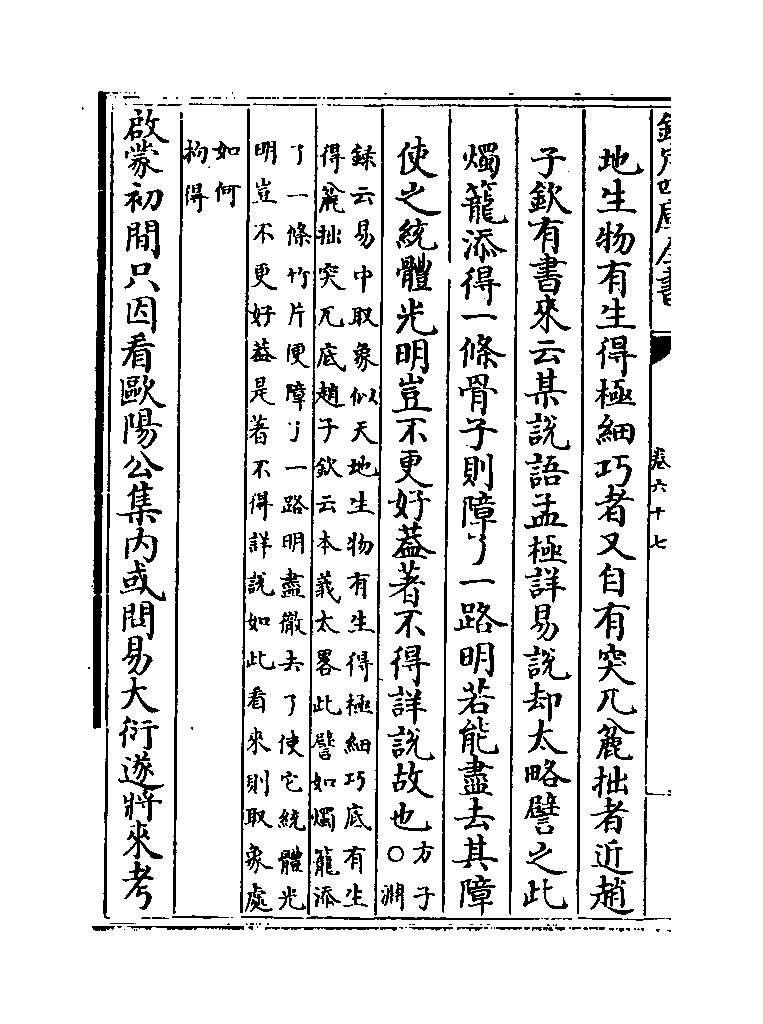 欽定四庫全書
卷六十七
地生物有生得極細巧者又自有突兀麄拙者近趙
子欽有書來云某說語孟極詳易說却太略譬之此
燭籠添得一條骨子則障了一路明若能盡去其障
使之統體光明豈不更好葢著不得詳說故也
方子
○淵
録云易中取象似天地生物有生得極細巧底有生
得麄拙突兀底趙子欽云本義太畧此譬如燭籠添
了一條竹片便障了一路明盡徹去了使它統體光
明豈不更好葢是著不得詳說如此看來則取象處
如何
拘得
啟蒙初間只因看歐陽公集内或問易大衍遂將來考